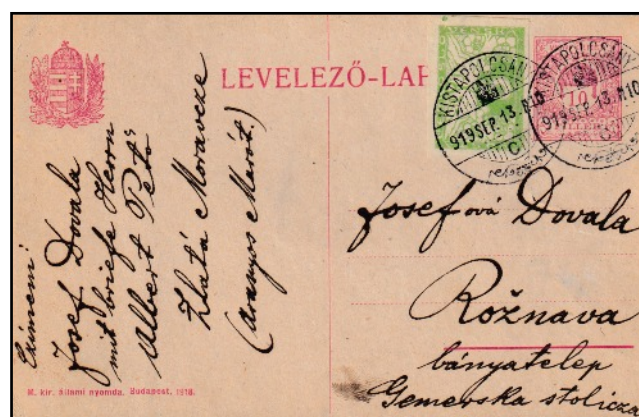 LEVELEZŐ-LAP
KISTAPOLCSÁNY
919 SEP. 13. N10
C
KISTAPOLCSÁNY
919 SEP. 13. N10
10
Josef Dovala
mit briefe Herrn
Albert Pető
Zlatá Moraveze
(Aranyos Marót.)
Josefová Dovala
Rožnava
bányatelep
Gemerska stolicza
M. kir. állami nyomda, Budapest, 1918.